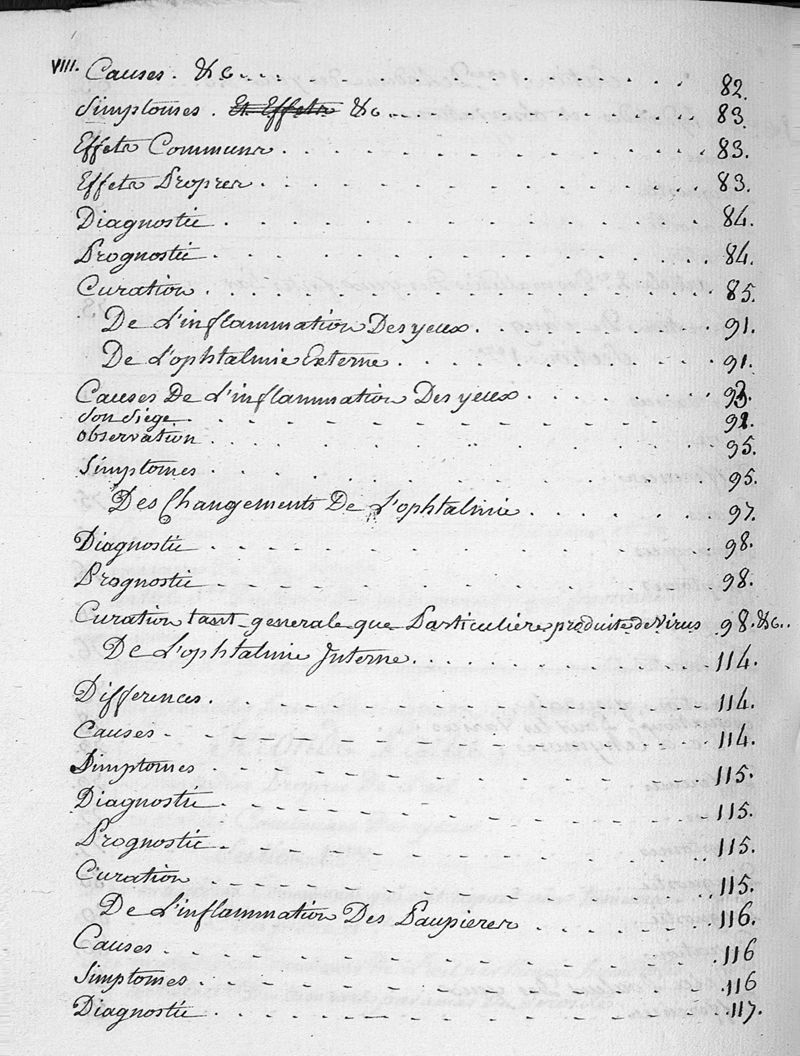 VIII. Causes. &c. 82.
Simptomes. Et Effets &c 83.
Effets Communs 83.
Effets Propres 83.
Diagnostic 84.
Prognostic 84.
Curation 85.
De L'inflammation Des yeux. 91.
De L'ophtalmie Externe 91.
Causes De L'inflammation Des yeux 93.
Son Siége 92.
observation 95.
Simptomes 95.
Des Changements De L'ophtalmie 97.
Diagnostic 98.
Prognostic 98.
Curation tant generale que Particuliere produite de virus 98. &c.
De L'ophtalmie Interne 114.
Differences 114.
Causes 114.
Simptomes 115.
Diagnostic 115.
Prognostic 115.
Curation 115.
De L'inflammation Des Paupieres 116.
Causes 116
Simptomes 116
Diagnostic 117.